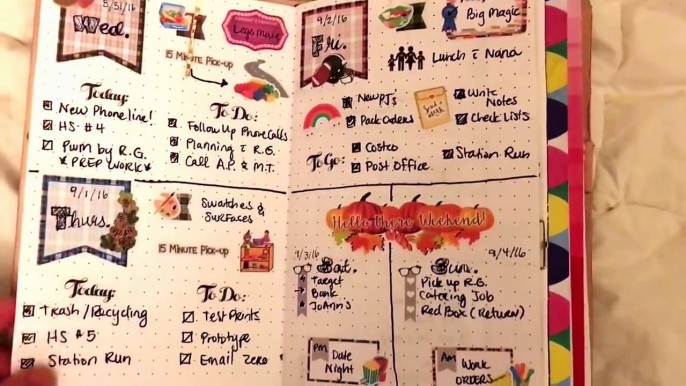 8/31/16
Wed.
Lego Movie
15 Minute Pick-up
Today:
New Phone line!
HS #4
Pwm by R.G.
* PREP WORK *
To Do:
Follow Up Phone Calls
Planning c R.G.
Call A.P. & M.T.
9/1/16
Thurs.
Swatches &
Surfaces
15 Minute Pick-up
Today:
Trash / Recycling
HS #5
Station Run
To Do:
Test Prints
Prototype
Email Zero
9/2/16
Fri.
Big Magic
Lunch c Nana
New PJ's
Pack Orders
Write
Notes
Check Lists
To Go:
Costco
Post Office
Station Run
Hello There Weekend!
9/3/16
Sat.
Target
Bank
JoAnn's
PM
Date
Night
9/4/16
Sun.
Pick up R.G.
Catering Job
Red Box (Return)
AM
Work
ORDERS